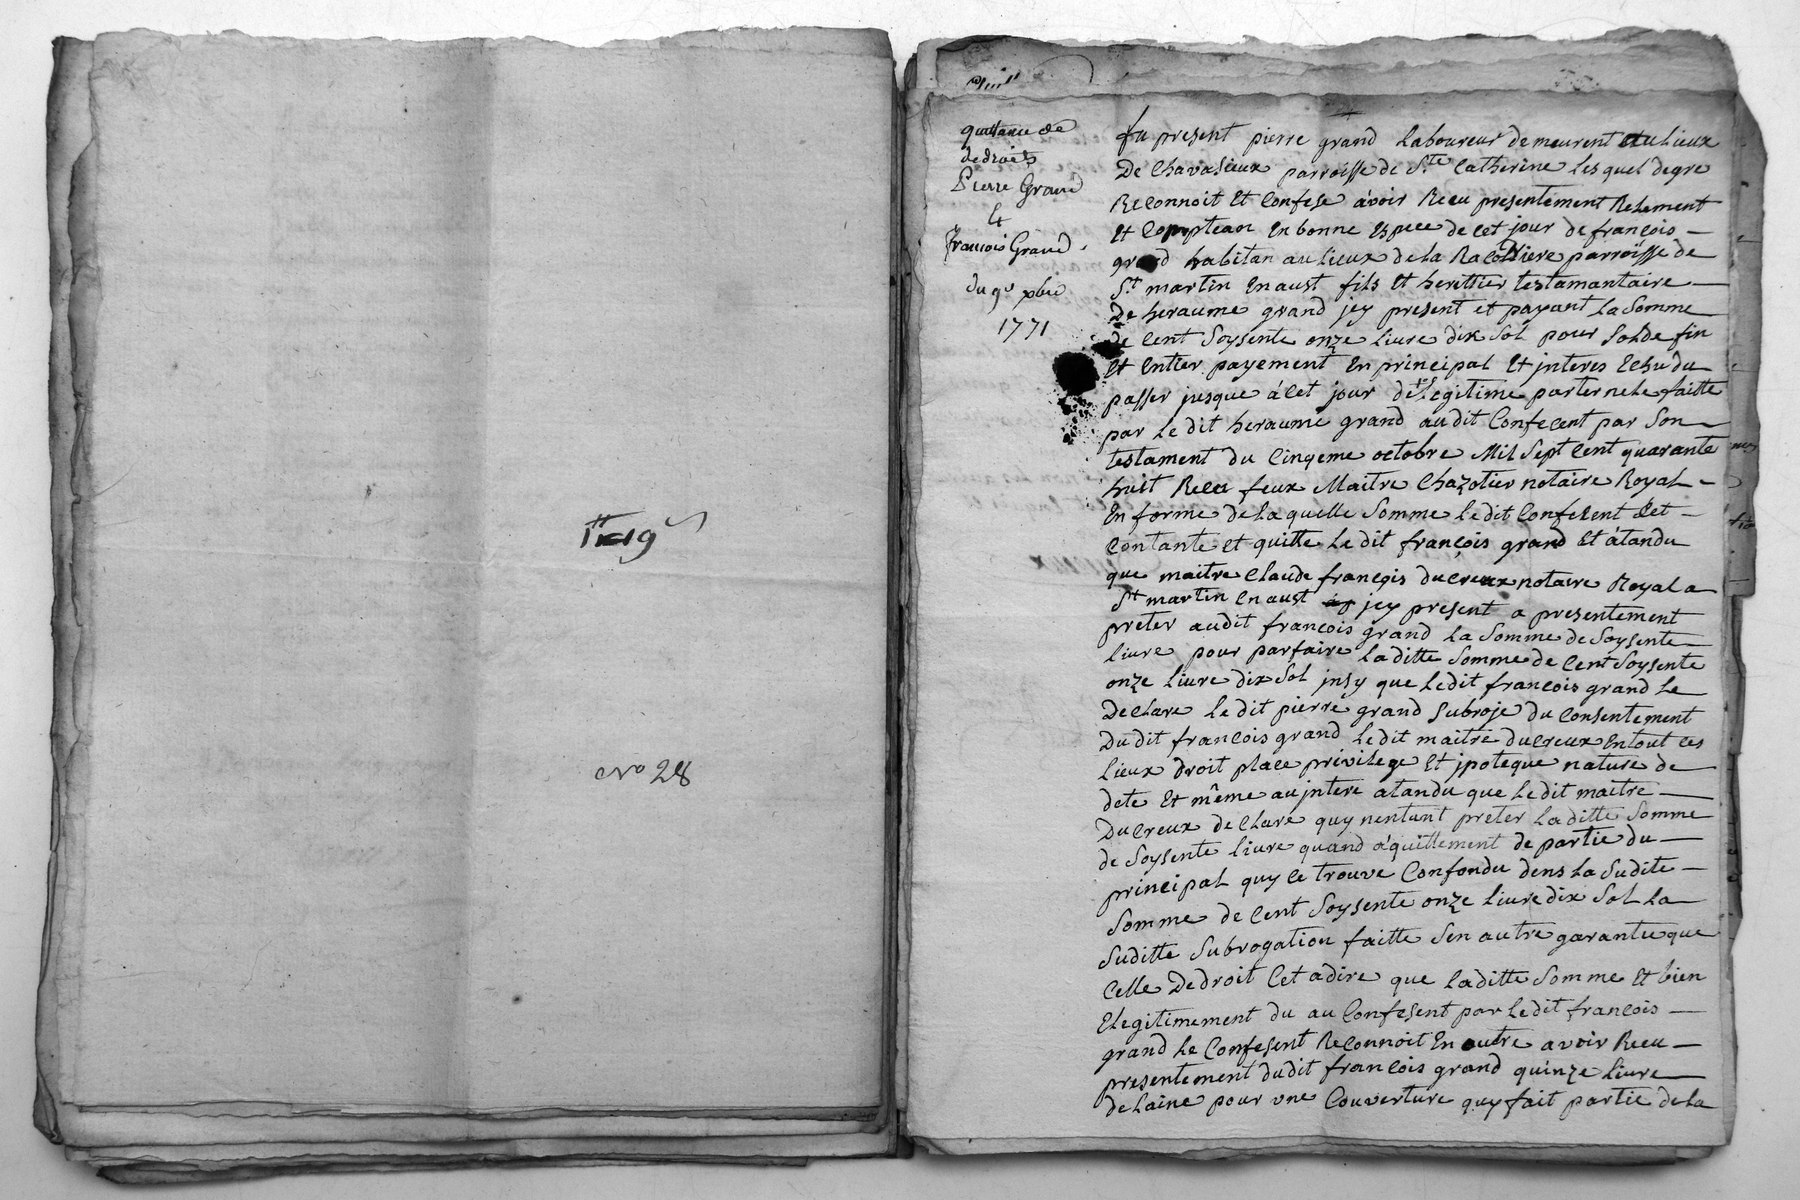 N° 28
quittance de
de droits
Pierre Grand
Et
françois Grand
du 9e xbre
1771
fu present pierre grand laboureur demeurent au lieux
De Chavasieux parroisse de Ste Catherine les quel de gre
Reconnoit Et Confese avoir Recu presentement Relement
Et Comptean En bonne Espece de cet jour de françois
grand habitan au lieux de la Racolliere parroisse de
St martin En aust fils Et herittier testamantaire
De heraume grand jcy present et payant la Somme
de Cent Soysente onze livre dix Sol pour Solde fin
Et Entier payement En principal Et jnteres Echu du
passer jusque à Cet jour de legitime parternele faitte
par le dit heraume grand au dit Confecent par Son
testament du Cinqeme octobre Mil Sept Cent quarante
huit Recu feux Maitre Chazotier notaire Royal
En forme de la quelle Somme le dit Confesent Cet
Contante et quitte le dit françois grand Et àtandu
que maitre Claude françois ducreux notaire Royal a
St martin En aust jcy present a presentement
preter audit francois grand la Somme de Soysente
livre pour parfaire la ditte Somme de Cent Soysente
onze livre dix Sol jnsy que le dit francois grand le
Declare le dit pierre grand Subroje du Consentement
Du dit francois grand le dit maitre ducreux En tout ces
lieux droit place privilege Et jpoteque nature de
dete Et même au jntere atandu que le dit maitre
Ducreux declare quy nentant preter la ditte Somme
de Soysente livre quand à quittement de partie du
principal quy ce trouve Confondu dens la Sudite
Somme de Cent Soysente onze livre dix Sol la
Suditte Subrogation faitte Sen autre garantie que
Celle De droit Cet adire que la ditte Somme Et bien
Elegitimement du au Confesent par le dit francois
grand le Confesent Reconnoit En outre avoir Recu
presentement dudit francois grand quinze livre
de laine pour une Couverture quy fait partie de la